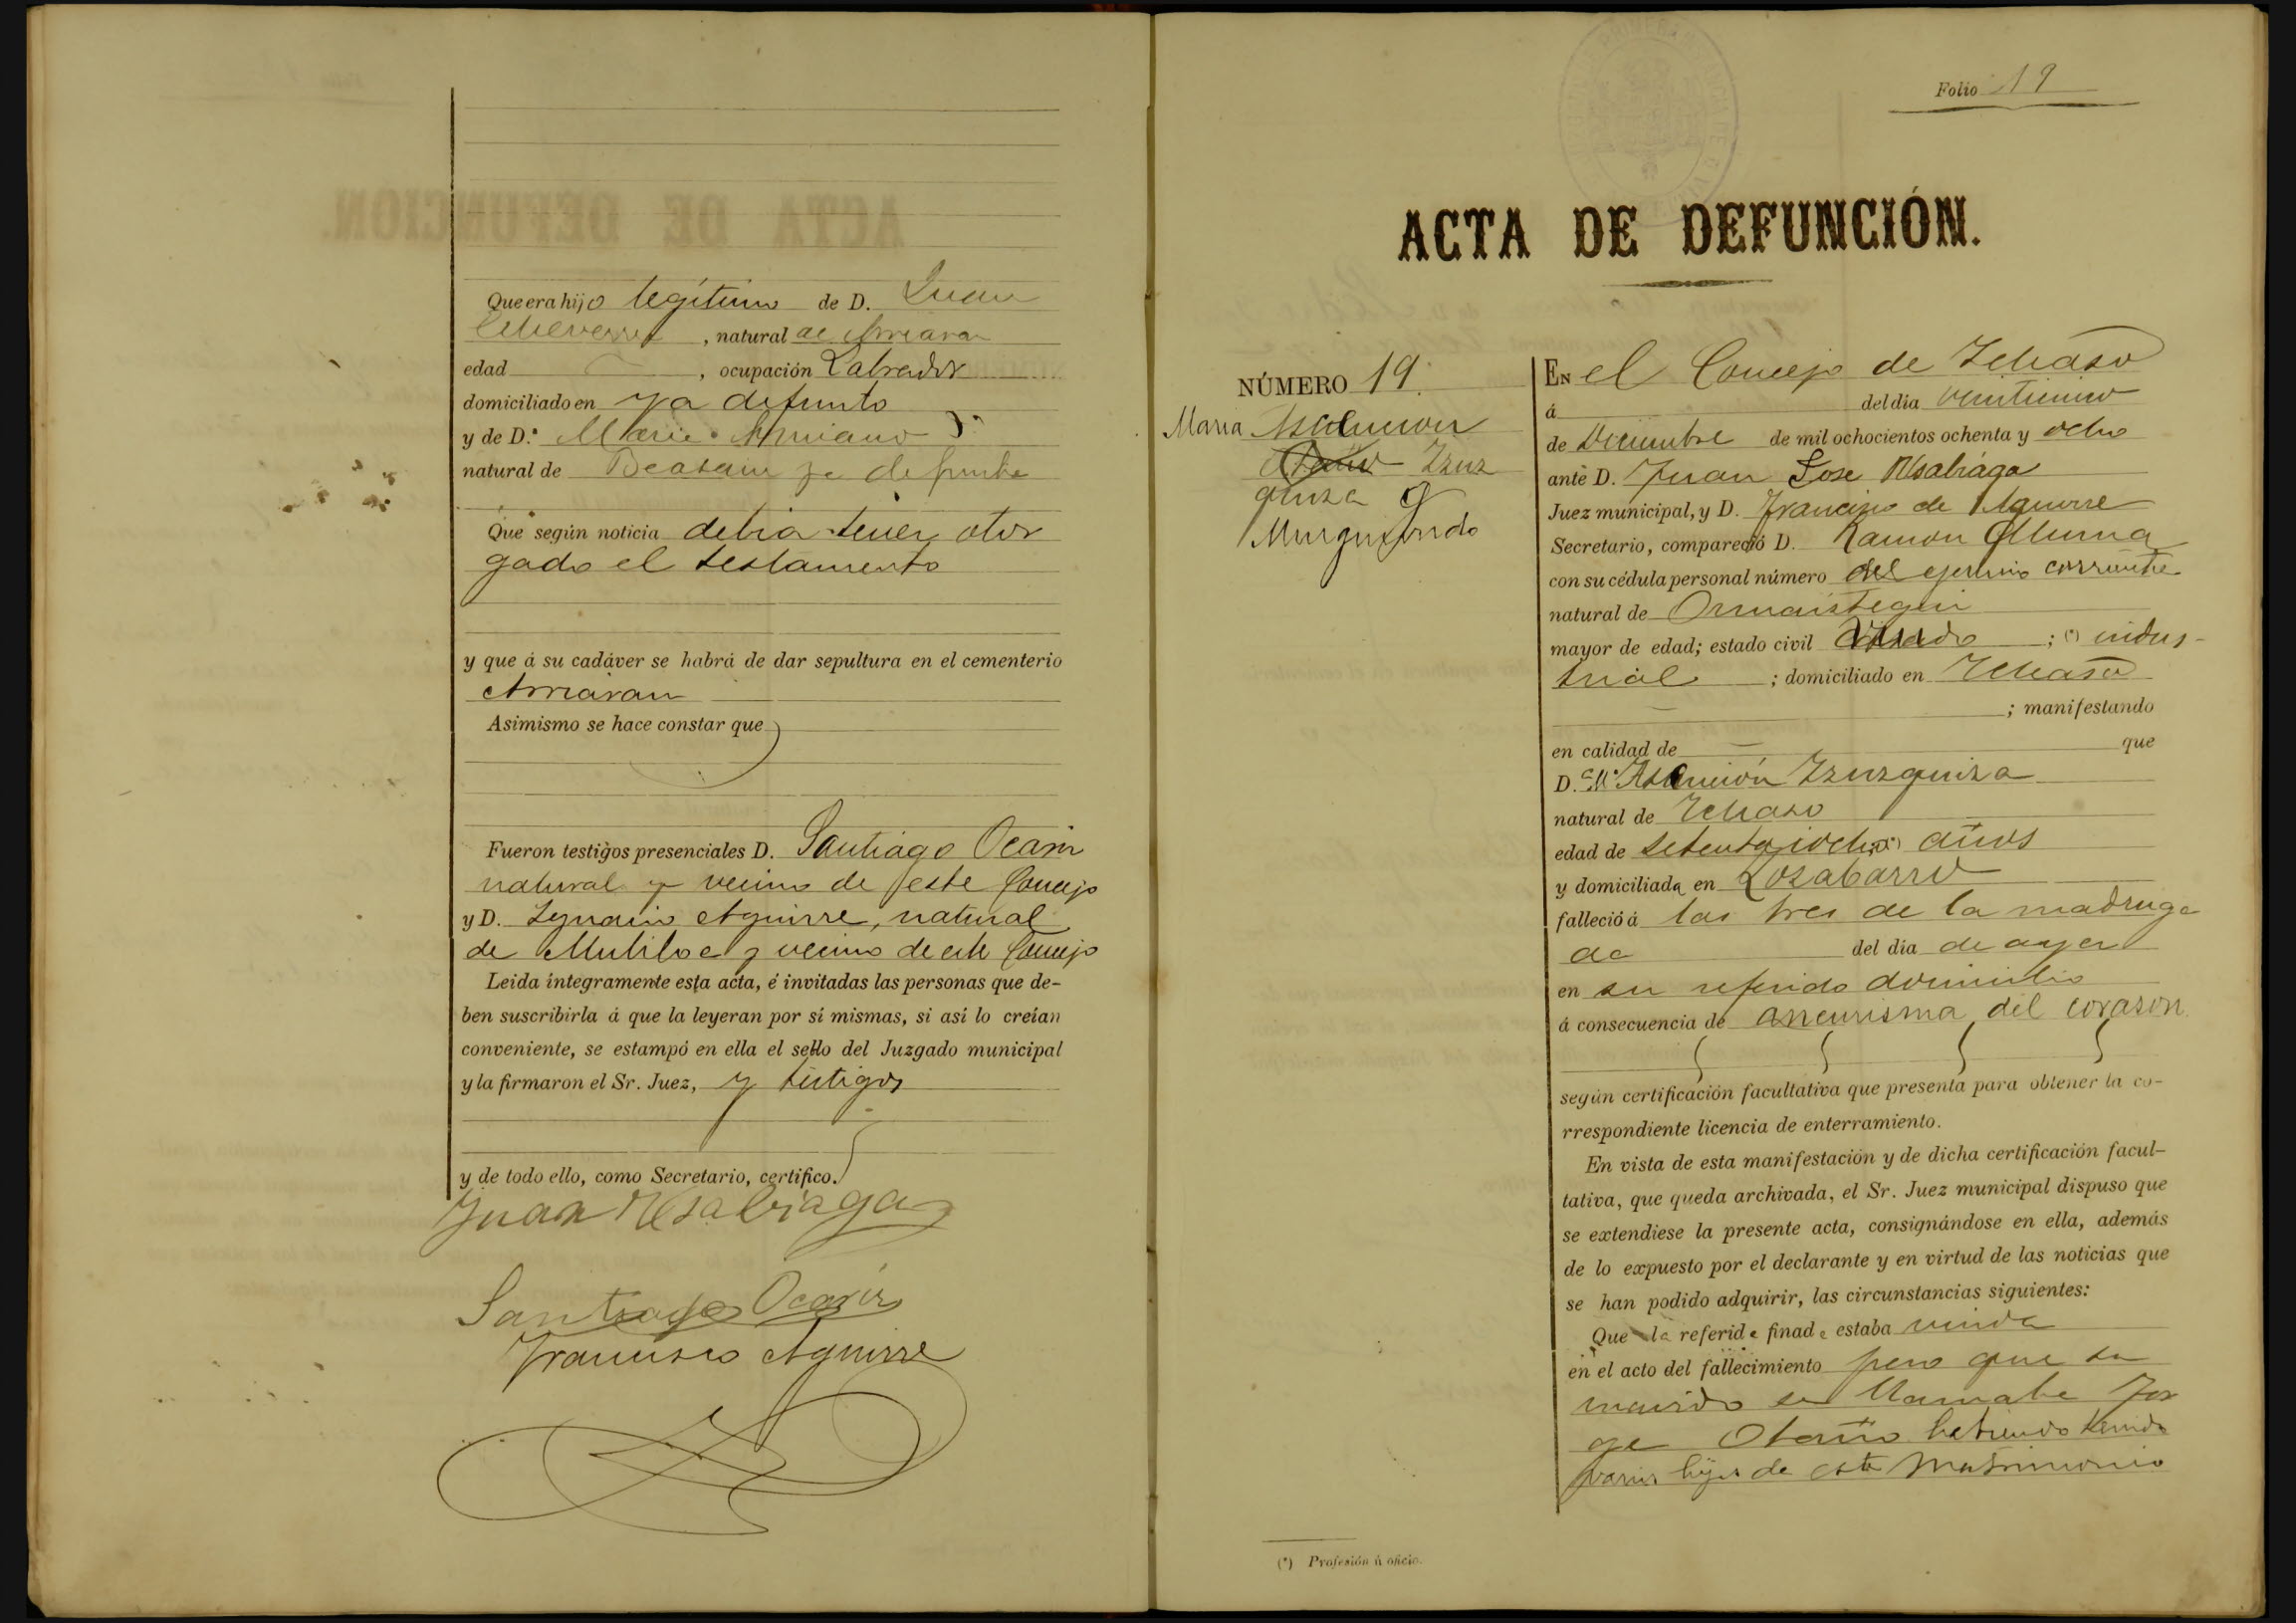 Que era hijo legítimo de D. Juan
Echeverria, natural de Arriaran
edad —, ocupación Labrador
domiciliado en ya defunto
y de D.ª Maria
natural de Beasain ya defunta
Que según noticia debia tener otor
gado el testamento
y que á su cadáver se habrá de dar sepultura en el cementerio
Arriaran
Asimismo se hace constar que
Fueron testigos presenciales D. Santiago Ocariz
natural y vecino de este Concejo
y D. Ignacio Aguirre, natural
de Mutiloa y vecino de este Concejo
Leida íntegramente esta acta, é invitadas las personas que de-
ben suscribirla á que la leyeran por sí mismas, si así lo creían
conveniente, se estampó en ella el sello del Juzgado municipal
y la firmaron el Sr. Juez, y testigos
y de todo ello, como Secretario, certifico.
Juan Usabiaga
Santiago Ocariz
Francisco Aguirre
Folio 19
ACTA DE DEFUNCIÓN.
NÚMERO 19.
Maria Asuncion
Izuz
quiza y
Murguiondo
EN el Concejo de Ichaso
á del dia veinticinco
de Diciembre de mil ochocientos ochenta y ocho
ante D. Juan Jose Usabiaga
Juez municipal, y D. Francisco de Aguirre
Secretario, compareció D. Ramon
con su cédula personal número del ejercicio corriente
natural de Ormaistegui
mayor de edad; estado civil ; (*) indus-
trial ; domiciliado en Ichaso
— ; manifestando
en calidad de — que
D.ª M.ª Asuncion Izuzquiza
natural de Ichaso
edad de setenta y ocho años
y domiciliada en Lozabarro
falleció á las tres de la madruga
da del dia de ayer
en su referido domicilio
á consecuencia de aneurisma del corason
según certificación facultativa que presenta para obtener la co-
rrespondiente licencia de enterramiento.
En vista de esta manifestación y de dicha certificación facul-
tativa, que queda archivada, el Sr. Juez municipal dispuso que
se extendiese la presente acta, consignándose en ella, además
de lo expuesto por el declarante y en virtud de las noticias que
se han podido adquirir, las circunstancias siguientes:
Que la referida finada estaba viuda
en el acto del fallecimiento pero que su
marido se llamaba Jor
ge Otaño habiendo tenido
varios hijos de este Matrimonio
(*) Profesión ú oficio.